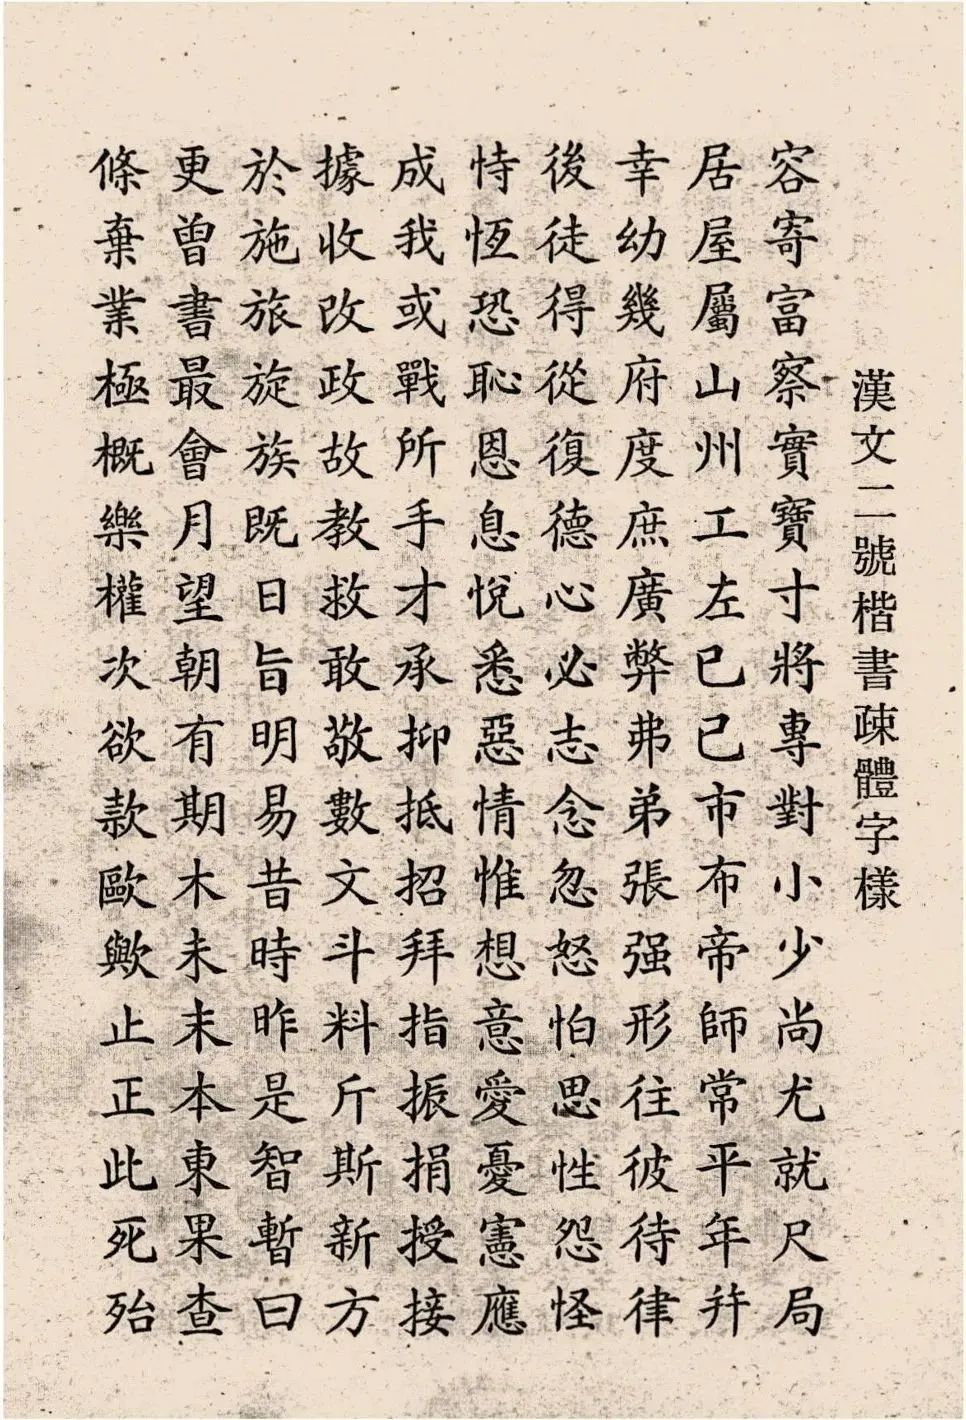 漢文二號楷書疎體字樣
容寄富察實寶寸將專對小少尚尤就尺局
居屋屬山州工左已己市布帝師常平年幷
幸幼幾府度庶廣弊弗弟張强形往彼待律
後徒得從復德心必志念忽怒怕思性怨怪
恃恆恐恥恩息悅悉惡情惟想意愛憂憲應
成我或戰所手才承抑抵招拜指振捐授接
據收改政故教救敢敬數文斗料斤斯新方
於施旅旋族既日旨明易昔時昨是智暫曰
更曾書最會月望朝有期木未末本東果查
條棄業極概樂權次欲款歐歟止正此死殆